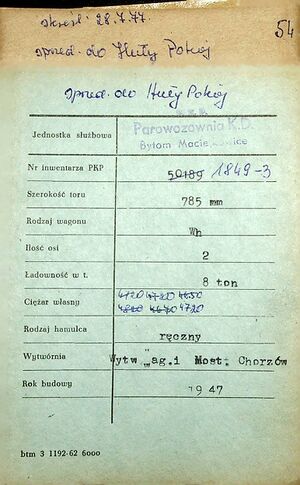 skreśl. 28.7.77.
54
sprzed. do Huty Pokój
sprzed. do Huty Pokój
P.K.P.
Jednostka służbowa Parowozownia K.D.
Bytom Maciejkowice
Nr inwentarza PKP 50189 1849-3
Szerokość toru 785 mm
Rodzaj wagonu Wh
Ilość osi 2
Ładowność w t. 8 ton
Ciężar własny 4720
4720
Rodzaj hamulca ręczny
Wytwórnia Wytw ag.i Most. Chorzów
Rok budowy 1947
btm 3 1192-62 6000